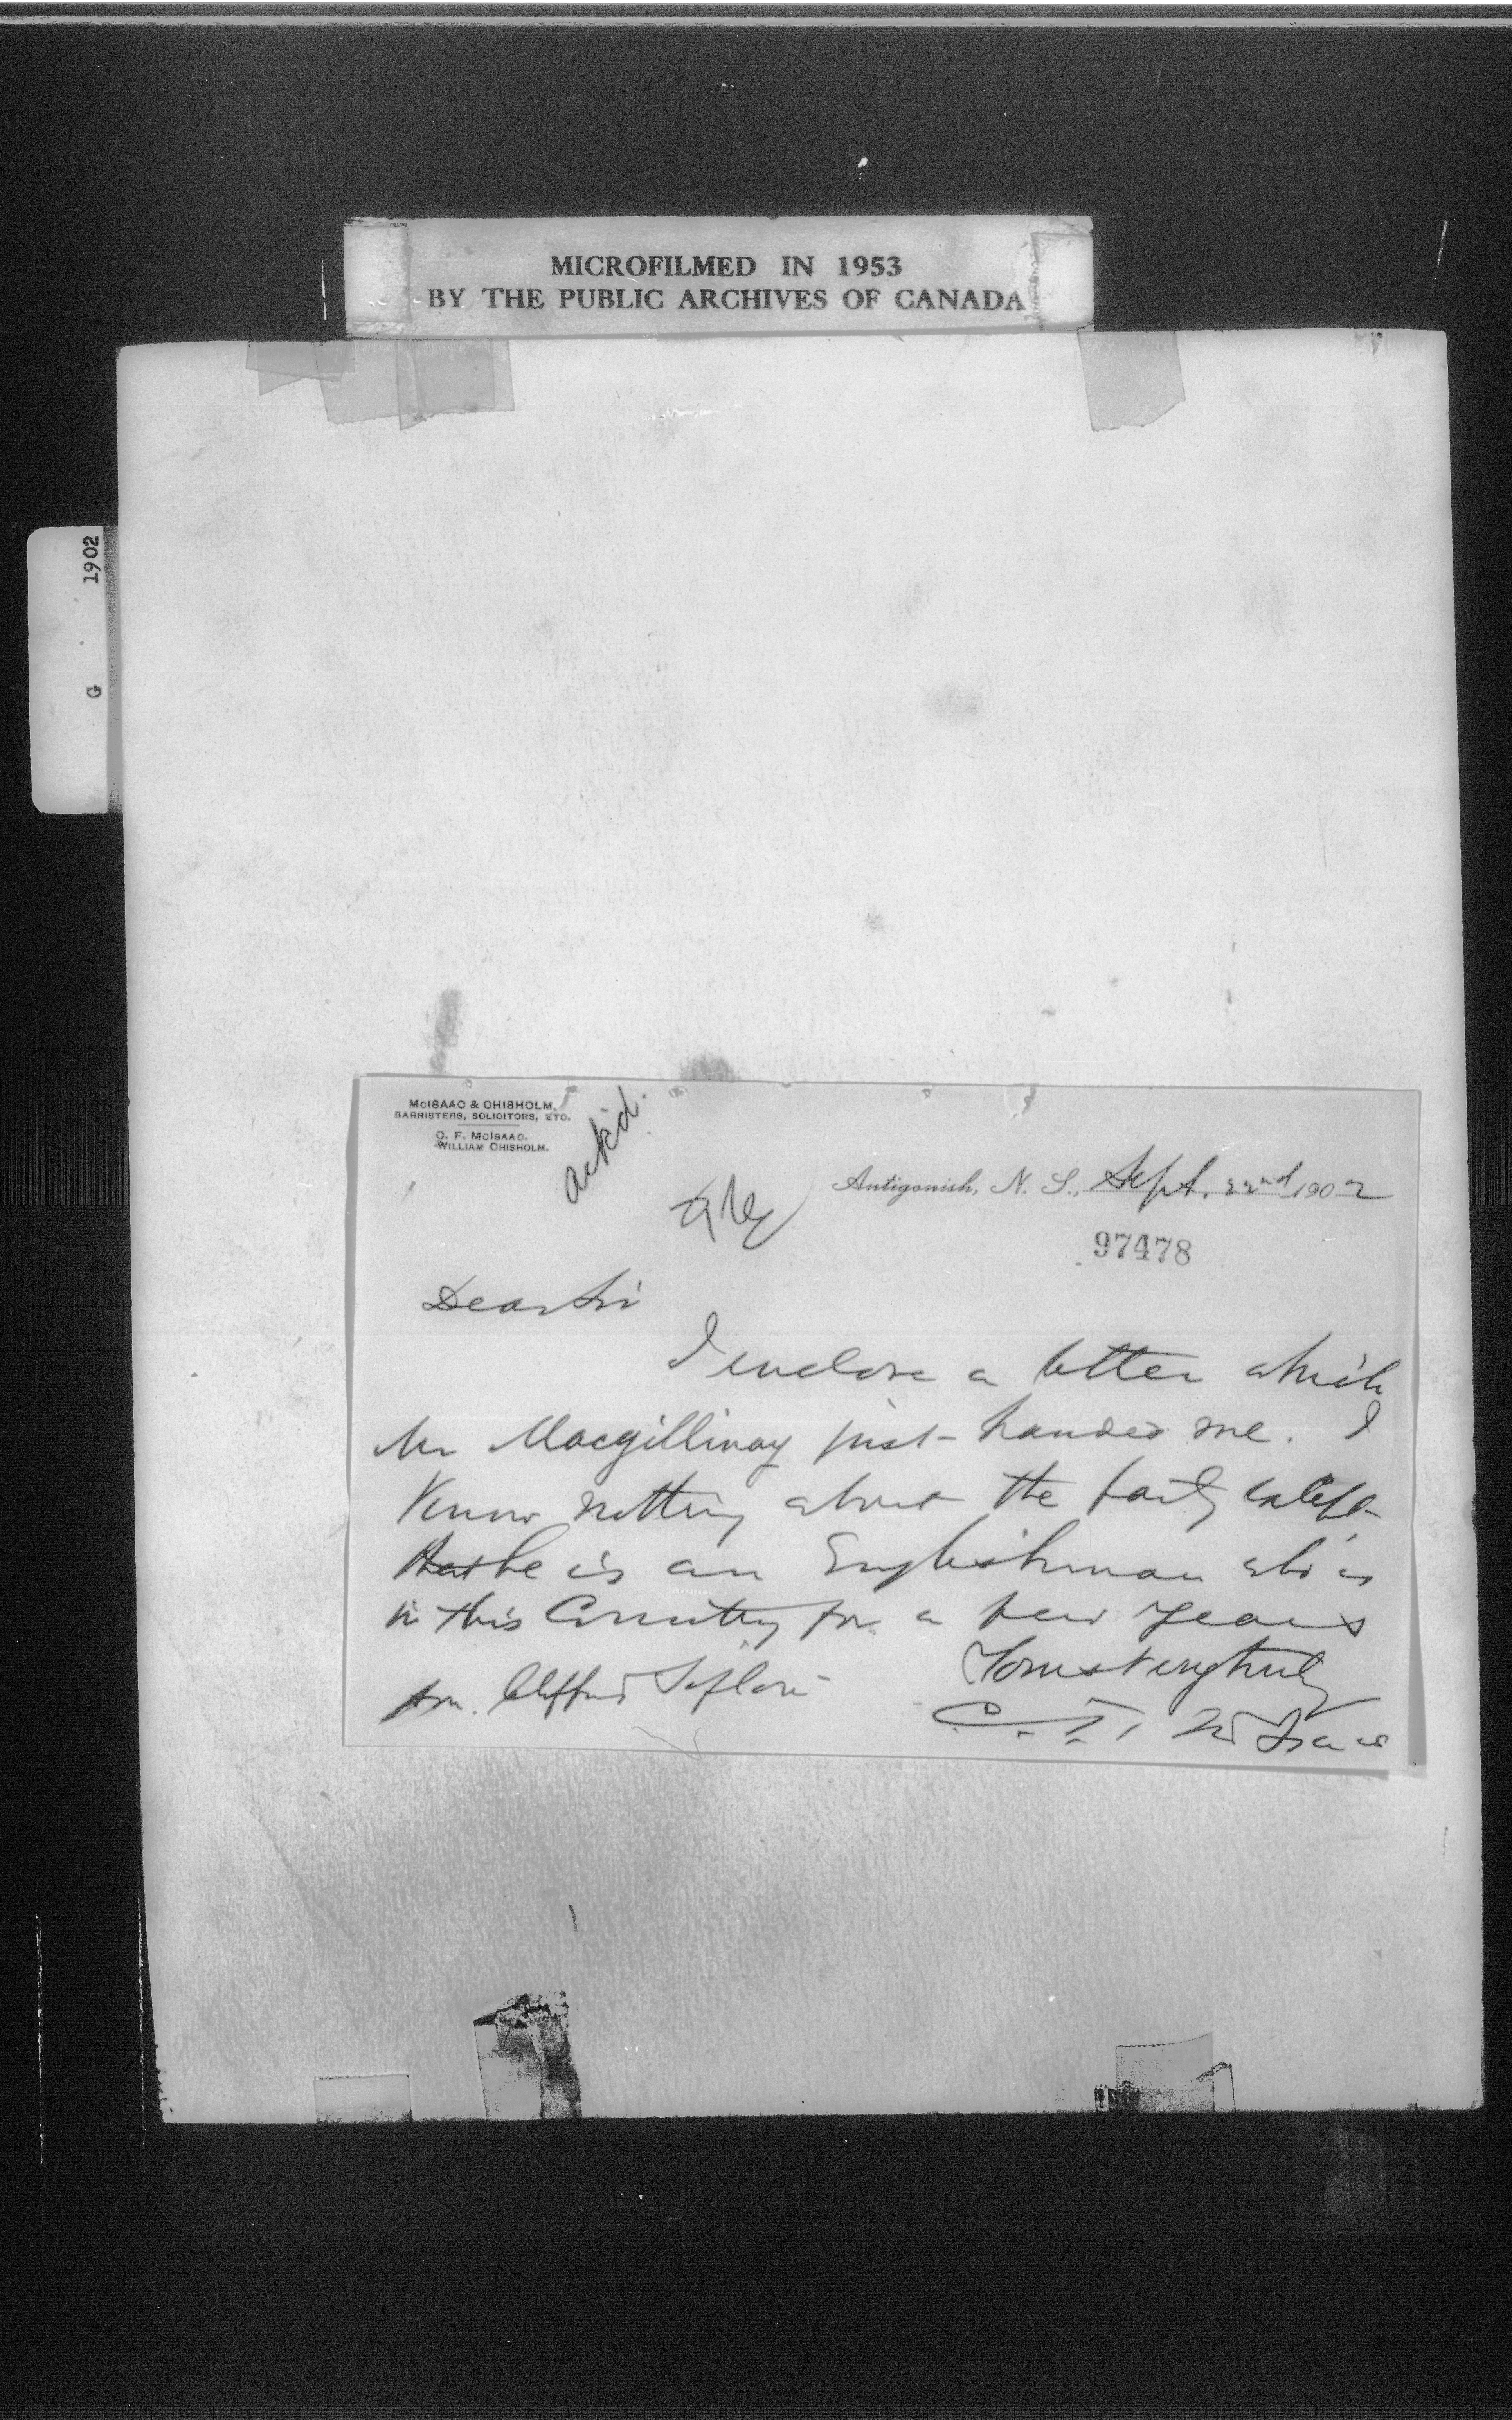 MICROFILMED IN 1953
BY THE PUBLIC ARCHIVES OF CANADA
1902
G
McISAAC & CHISHOLM,
BARRISTERS, SOLICITORS, ETC.
C. F. McISAAC.
WILLIAM CHISHOLM.
ackd.
Antigonish, N. S., Sept. 22nd 1902
97478
Dear Sir
I enclose a letter which
Mr Macgillivray just handed me. I
know nothing about the party except
that he is an Englishman who is
in this Country for a few years
Yours very truly
Hon. Clifford Sifton
C. F. McIsaac